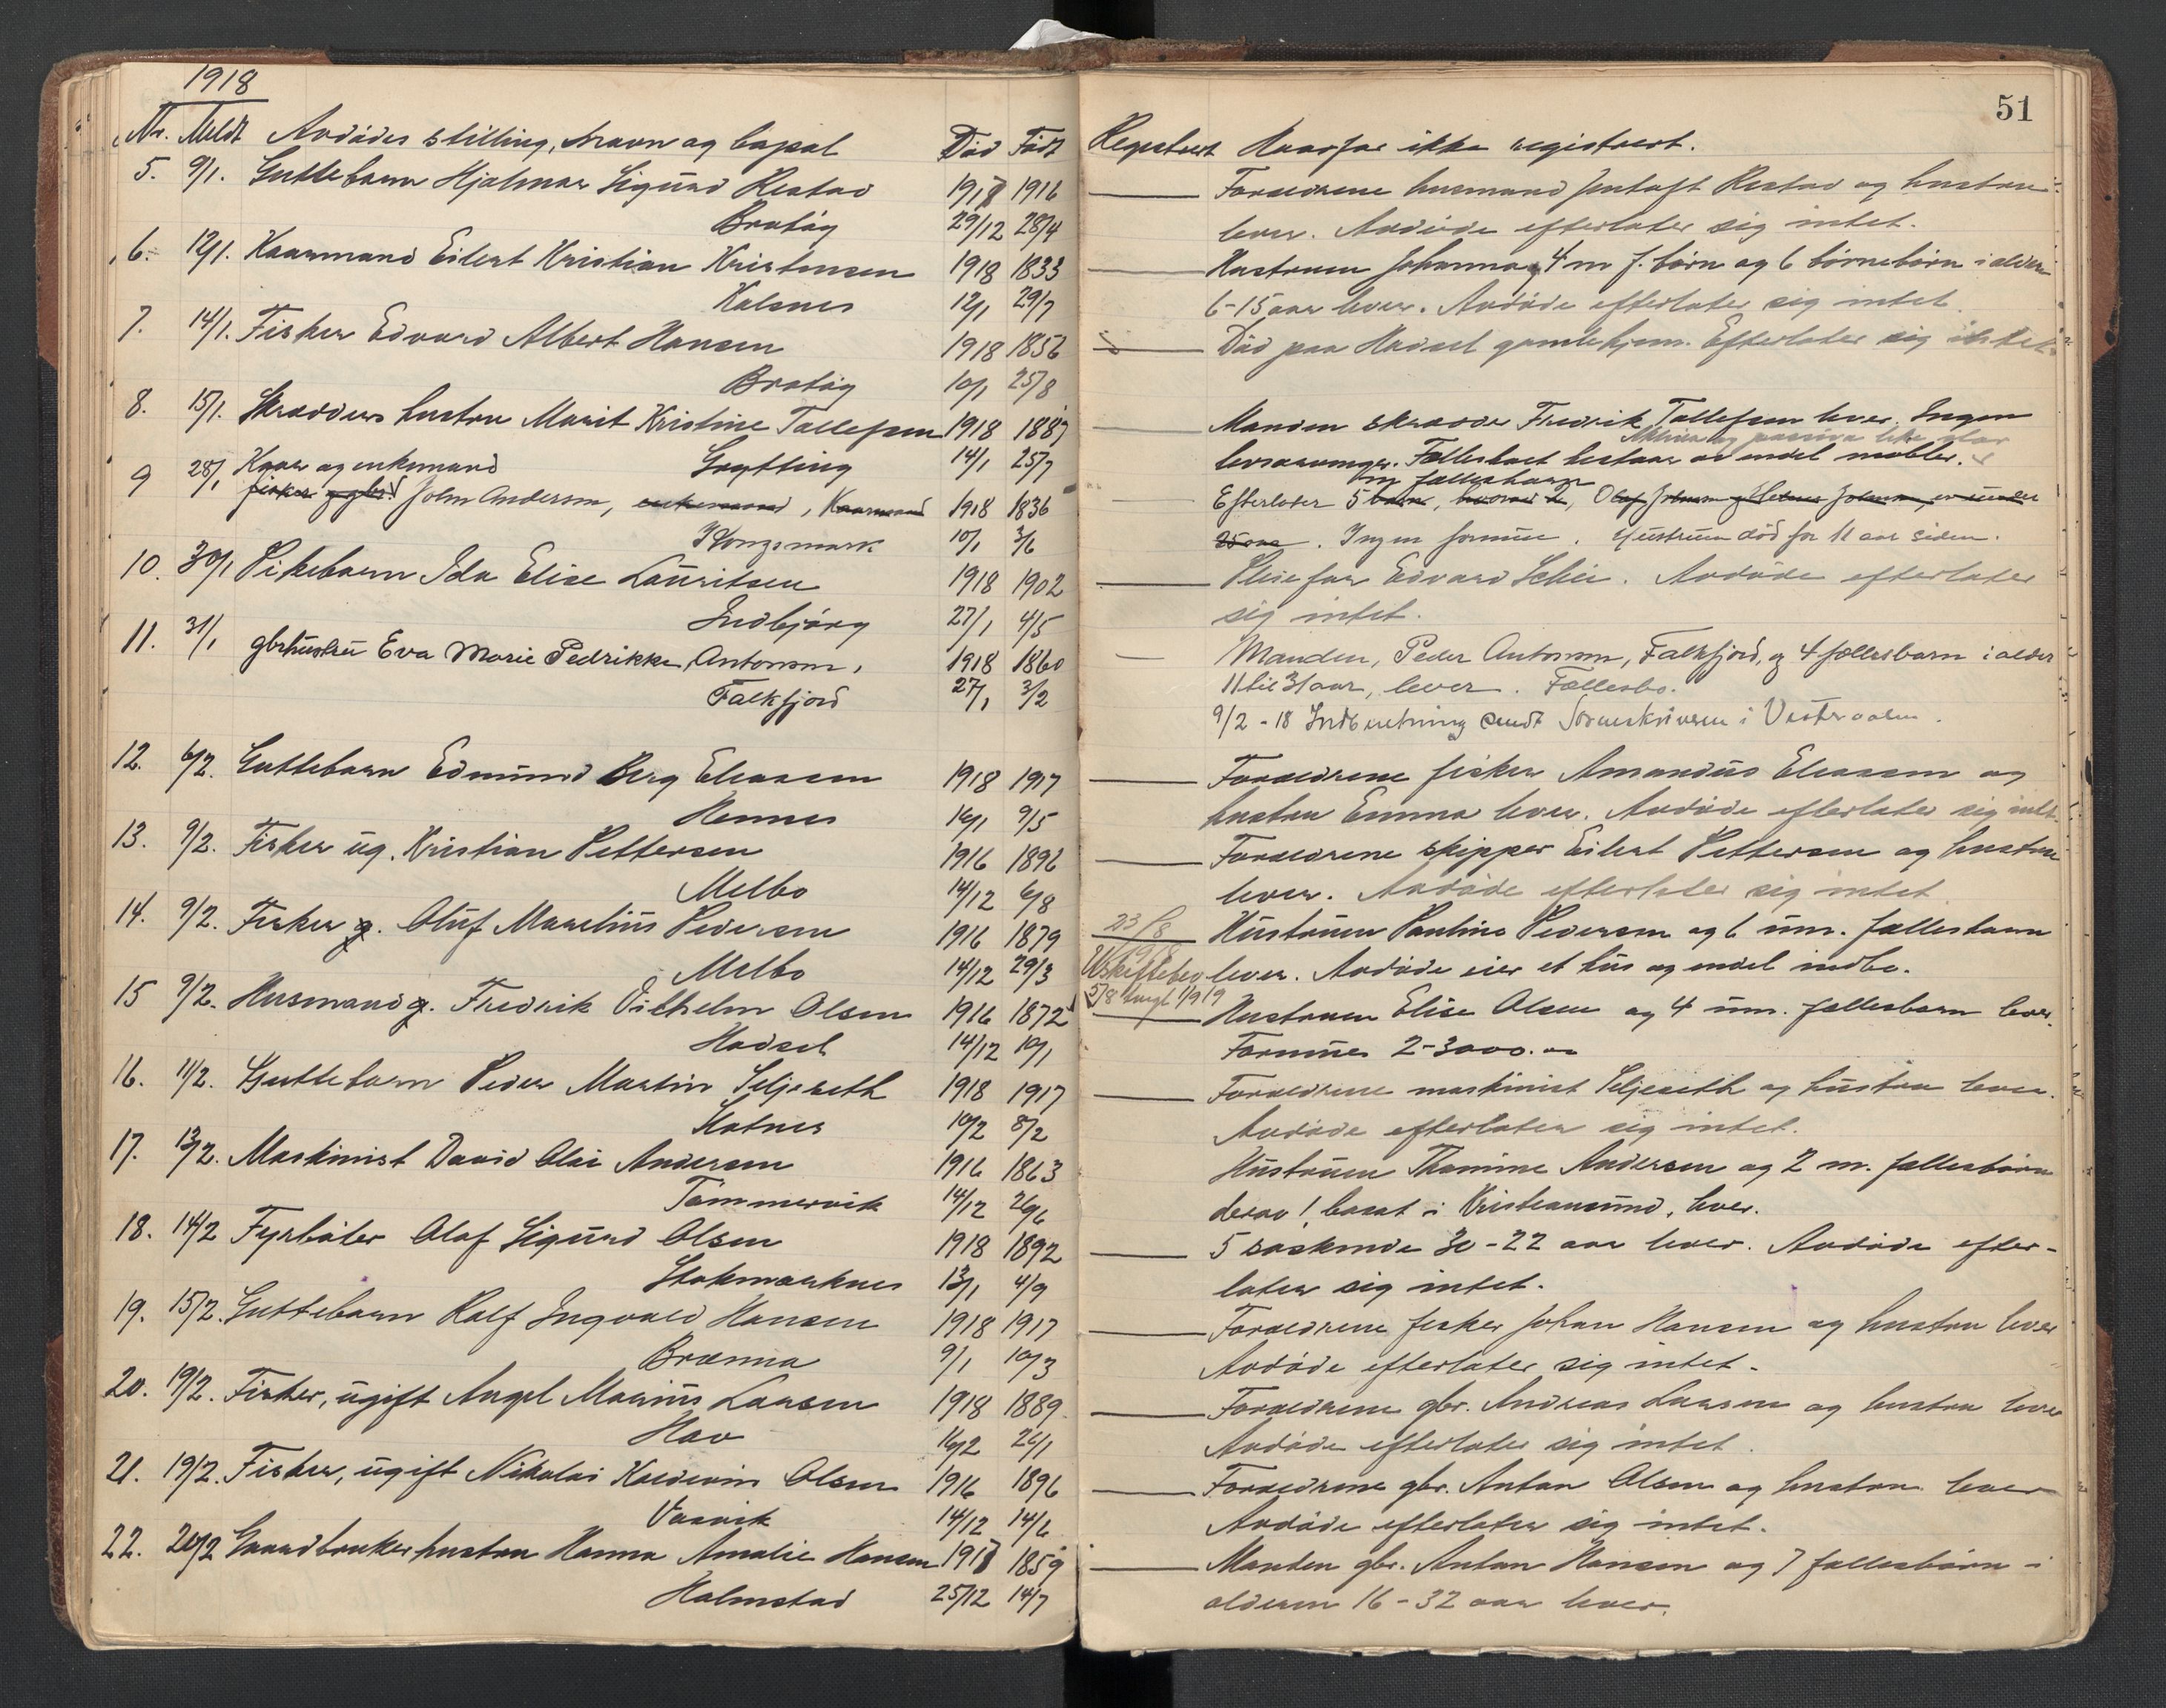 1918
Nr. Meldt Avdödes stilling, navn og bopæl Död Födt
5. 9/1. Guttebarn Hjalmar Sigurd Restad 1917 1916
Bratöy 29/12 28/4
6. 12/1. Kaarmand Eilert Kristian Kristensen 1918 1833
Kalsnes 12/1 29/7
7. 14/1. Fisker Edvard Albert Hansen 1918 1856
Bratöy 10/1 25/8
8. 15/1. Skrædders hustru Marit Kristine Tollefsen 1918 1887
Grytting 14/1 25/7
9 28/1 Kaar og enkemand
fisker og gbr John Andersen, enkemand, Kaarmand 1918 1836
Kongsmark 10/1 3/6
10. 30/1 Pikebarn Ida Elise Lauritsen 1918 1902
Indbjörg 27/1 4/5
11. 31/1 gbrhustru Eva Marie Pedrikke Antonsen, 1918 1860
Falkfjord 27/1 3/2
12. 6/2. Guttebarn Edmund Berg Eleasen 1918 1917
Hennes 16/1 9/5
13. 9/2. Fisker ug. Kristian Pettersen 1916 1896
Melbo 14/12 6/8
14. 9/2. Fisker g. Oluf Marelius Pedersen 1916 1879
Melbo 14/12 29/3
15 9/2. Husmand g. Fredrik Vilhelm Olsen 1916 1872
Hadsel 14/12 10/1
16. 11/2. Guttebarn Peder Martin Seljeseth 1918 1917
Skatnes 10/2 8/2
17. 13/2. Maskinist David Olai Andersen 1916 1863
Tömmervik 14/12 26/6
18. 14/2 Fyrböter Olaf Sigurd Olsen 1918 1892
Stokmarknes 13/1 4/9
19. 15/2. Guttebarn Ralf Ingvald Hansen 1918 1917
Brænna 9/1 10/3
20. 19/2. Fisker, ugift Angel Marius Larsen 1918 1889
Hav 16/2 26/1
21. 19/2. Fisker, ugift Nikolai Kaldevin Olsen 1916 1896
Vasvik 14/12 14/6
22. 20/2 Gaardbrukerhustru Hanna Amalie Hansen 1917 1859
Holmstad 25/12 14/7
51
Registrert Hvorfor ikke registrert.
Forældrene husmand Restad og hustru
lever. Avdöde efterlater sig intet.
Hustruen Johanna, 4 m f. börn og 6 börnebörn i alder
6-15 aar lever. Avdöde efterlater sig intet.
Död paa Hadsel gamlehjem. Efterlater sig intet.
Manden skrædder Fredrik Tollefsen lever. Ingen
Aktiva og passiva like stor
livsarvinger. Fællesboet bestaar av endel møbler.
my fællesbarn
Efterlater 5 barn, hvorav 2, Olaf Johnsen og Johnsen, er under
25 aar. Ingen formue. Hustruen död for 11 aar siden.
Pleiefar Edvard Schei. Avdöde efterlater
sig intet.
Manden, Peder Antonsen, Falkfjord, og 4 fællesbarn i alder
11 til 31 aar, lever. Fællesbo.
9/2 - 18 Indberetning sendt Sorenskriveren i Vesteraalen.
Forældrene fisker Amandus Eleasen og
hustru Emma lever. Avdöde efterlater sig intet
Forældrene skipper Eilert Pettersen og hustru
lever. Avdöde efterlater sig intet
23/8 Hustruen Pauline Pedersen og 6 um. fællesbarn
Uskiftebev lever. Avdöde eier et hus og endel indbo.
5/8 1919
Hustruen Elise Olsen og 4 um. fællesbarn lever.
Formues 2-3000.00
Forældrene maskinist Seljeseth og hustru lever.
Avdöde efterlater sig intet.
Hustruen Thomine Andersen og 2 m. fællesbörn
derav 1 bosat i Kristiansund, lever.
5 söskende 30-22 aar lever. Avdöde efter-
later sig intet.
Forældrene fisker Johan Hansen og hustru lever
Avdöde efterlater sig intet.
Forældrene gbr. Andreas Larsen og hustru lever
Avdöde efterlater sig intet.
Forældrene gbr. Anton Olsen og hustru lever
Avdöde efterlater sig intet.
Manden gbr. Anton Hansen og 7 fællesbörn i
alderen 16-32 aar lever.